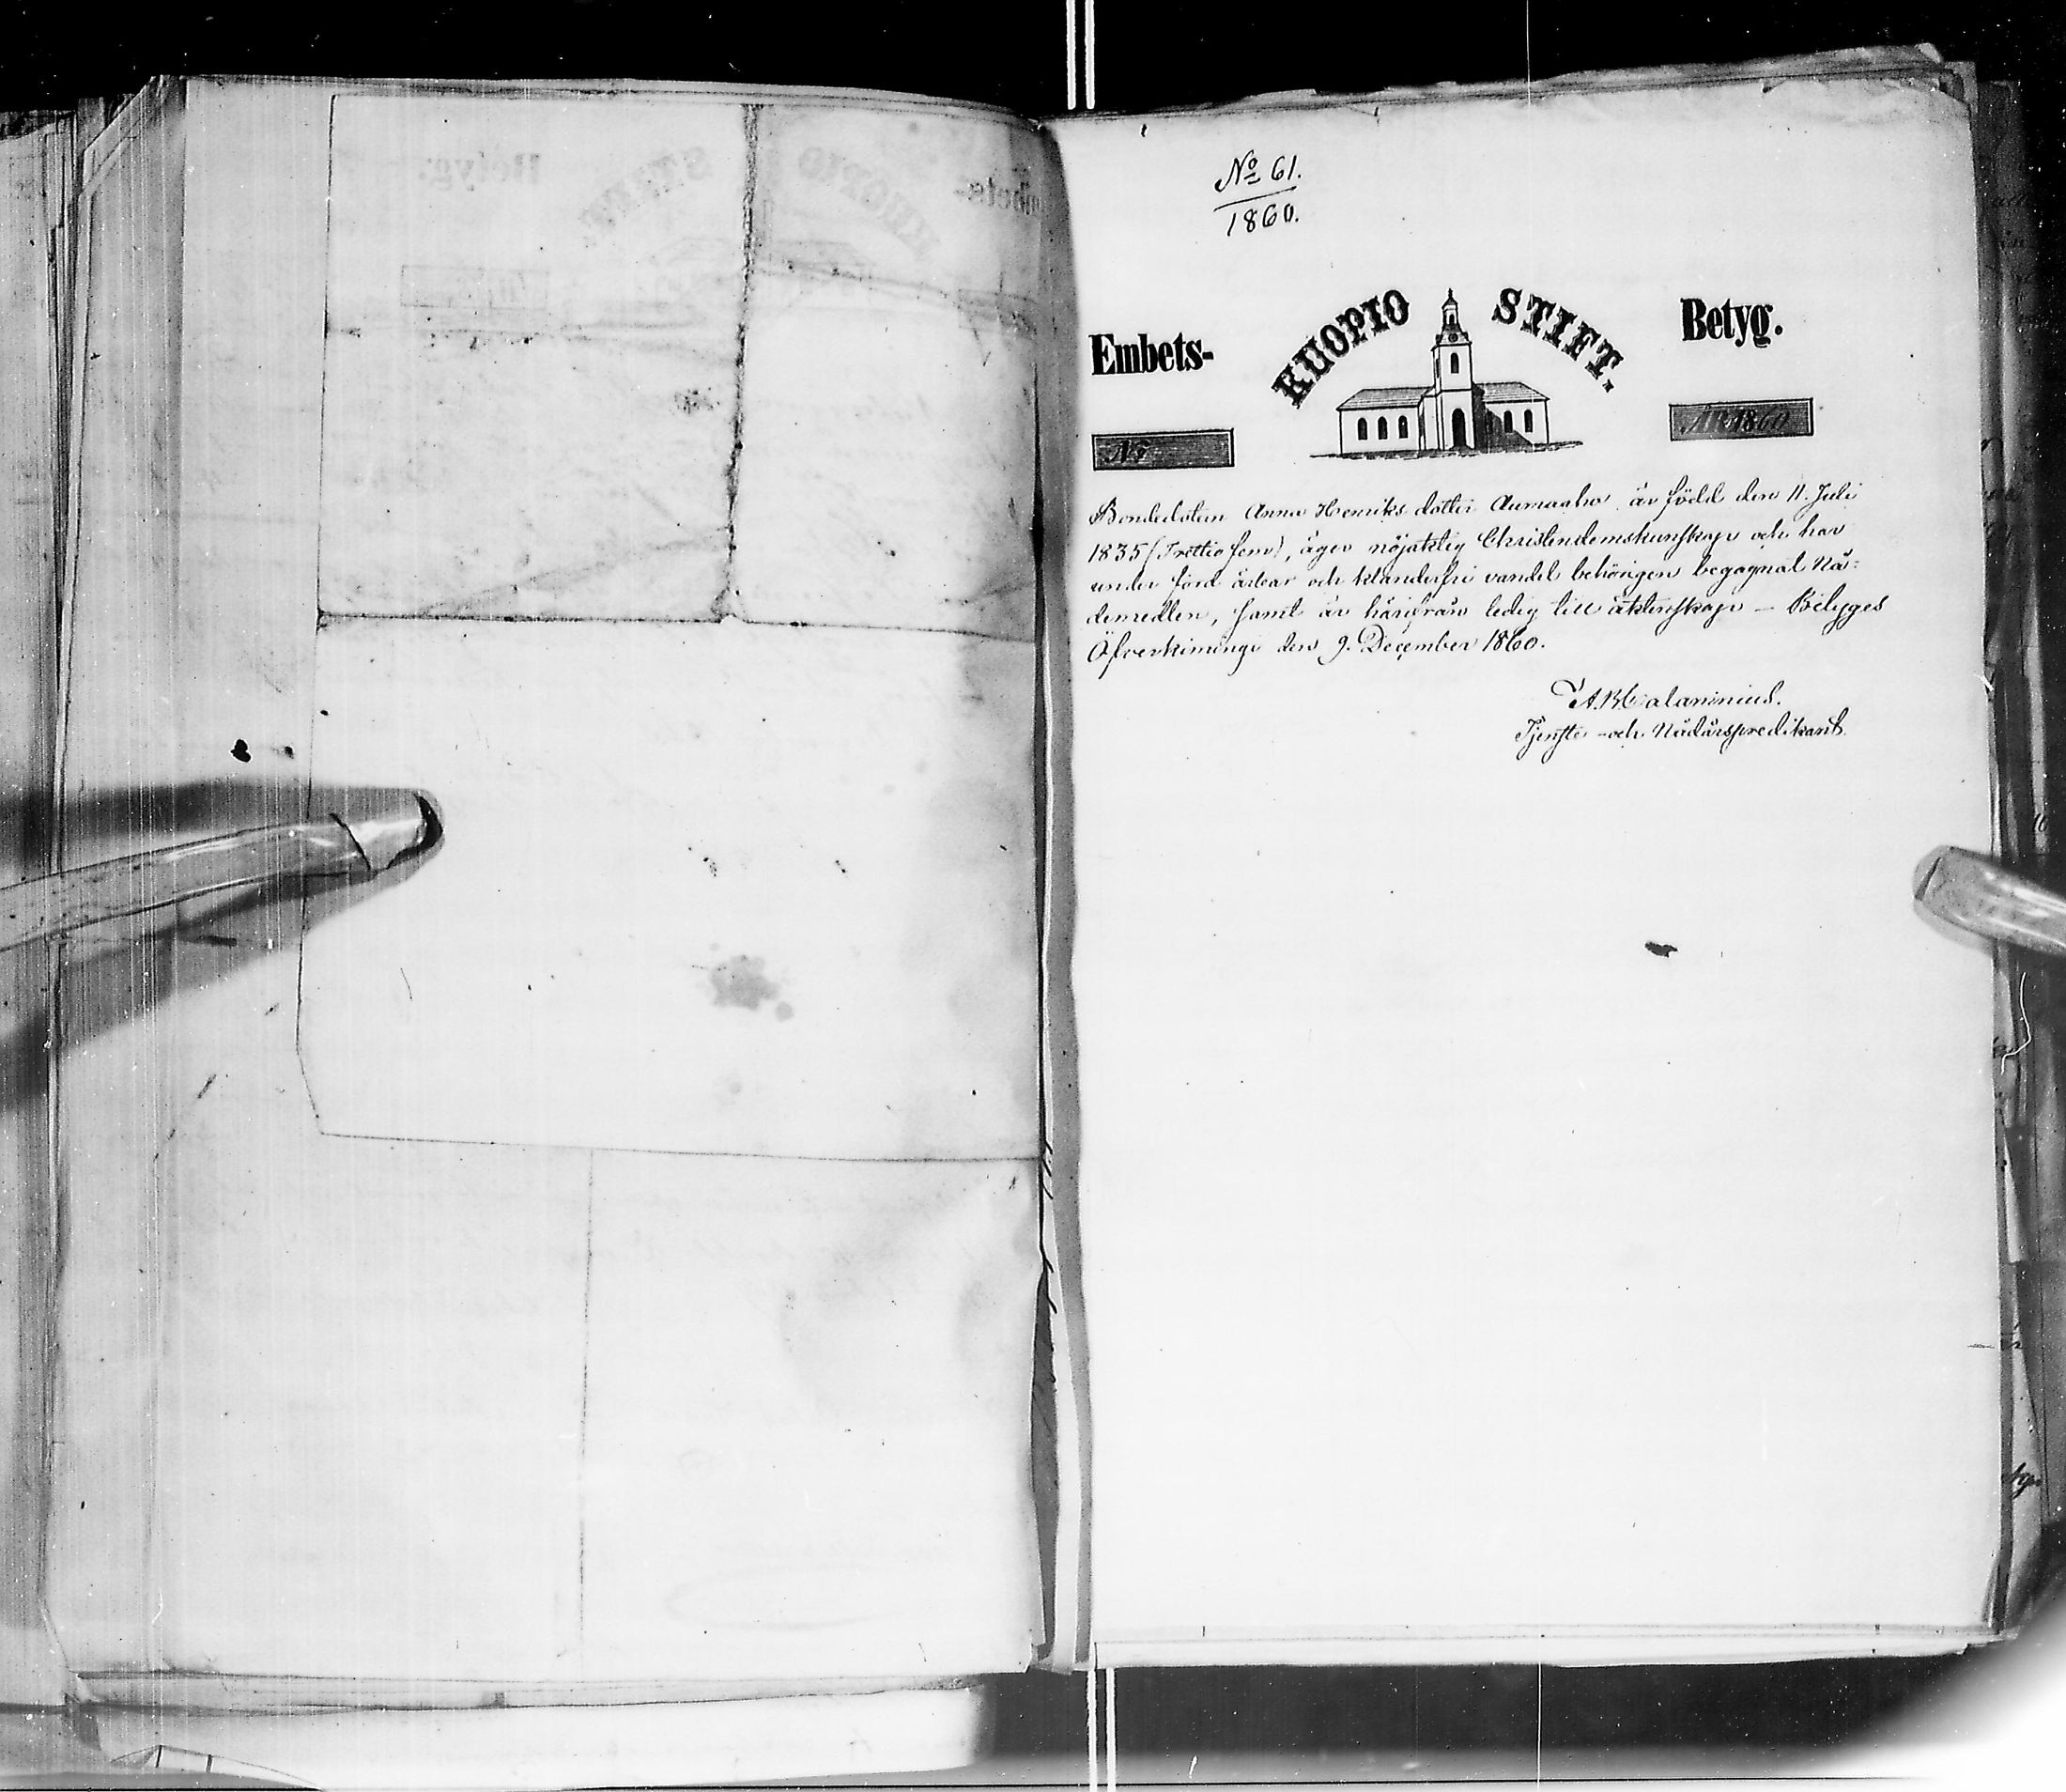 No 61.
1860.
Embets-
KUOPIO STIFT.
Betyg.
No
ÅR 1860
Bondedotern Anna Henriks dotter Aumaaho är född den 11. Juli
1835 (Trettio fem), äger nöjaktig Christendomskunskap och har
under förd ärbar och klanderfri vandel behörigen begagnat Nå=
demedlen, samt är härifrån ledig till äktenskap – Betyges
Öfverkimingi den 9. December 1860.
A. B. Calamnius.
Tjenste- och Nådårspredikant.